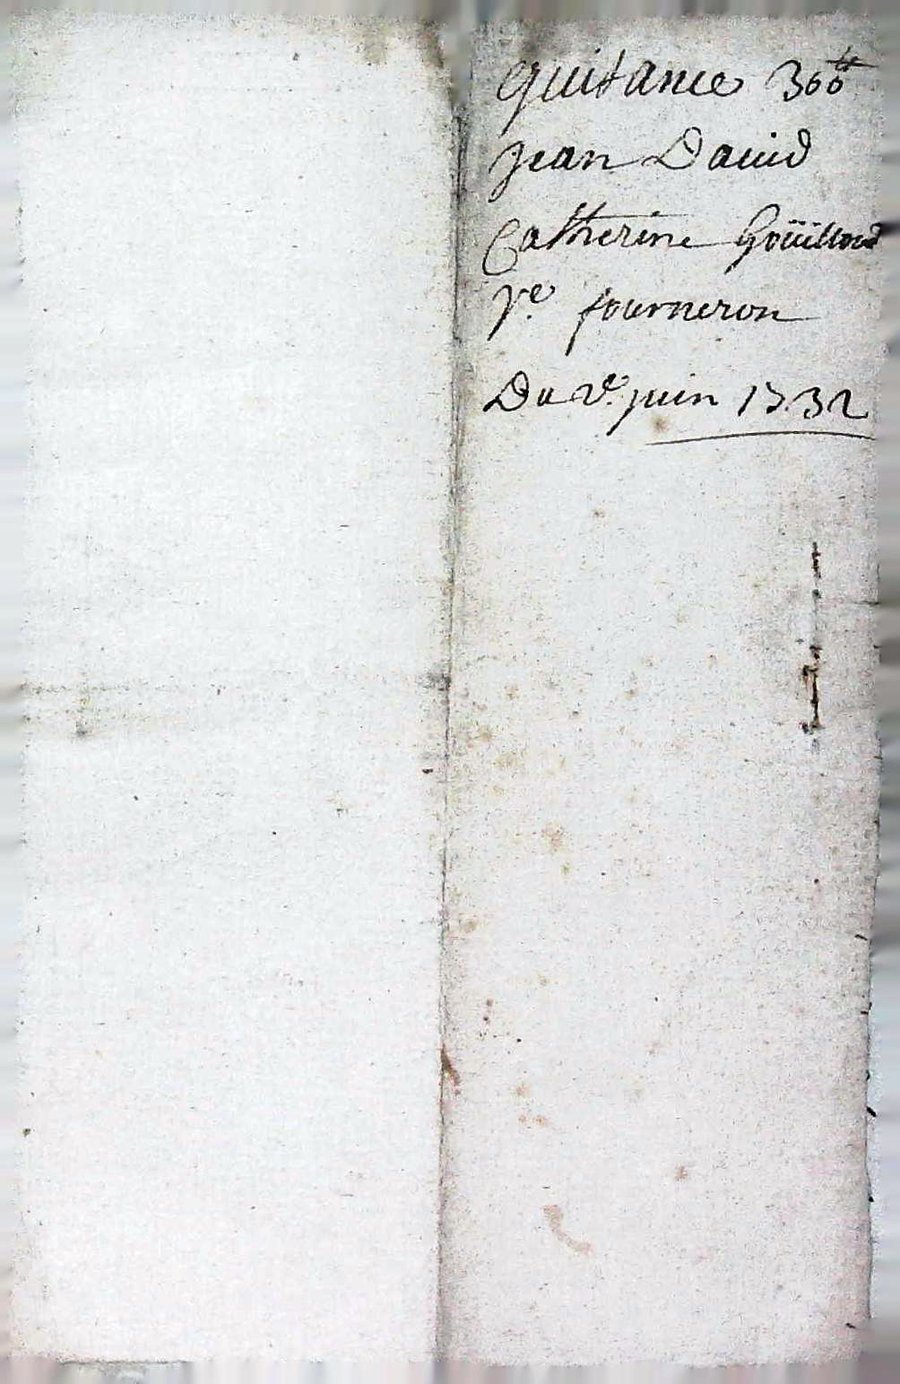 quitance 300ᵗᵗ
jean Dauid
Catherine Goüilloud
vᵉ. fourneron
Du 2ᵉ. juin 1732